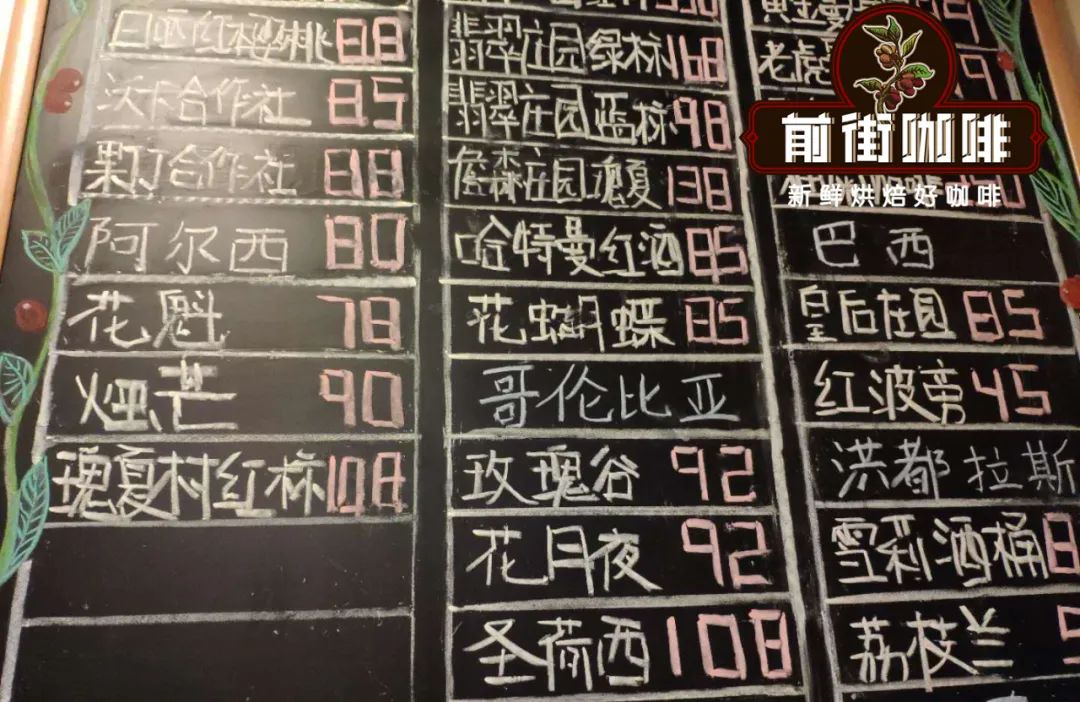 日晒红樱桃 88
沃卡合作社 85
果丁合作社 88
阿尔西 80
花魁 78
烟芒 90
瑰夏村红标 108
翡翠庄园绿标 168
翡翠庄园蓝标 98
詹森庄园瑰夏 138
哈特曼红酒 85
花蝴蝶 85
哥伦比亚
玫瑰谷 92
花月夜 92
圣荷西 108
黄金曼
老虎
前街咖啡
新鲜烘焙好咖啡
巴西
皇后庄园 85
红波旁 45
洪都拉斯
雪莉酒桶
荔枝兰